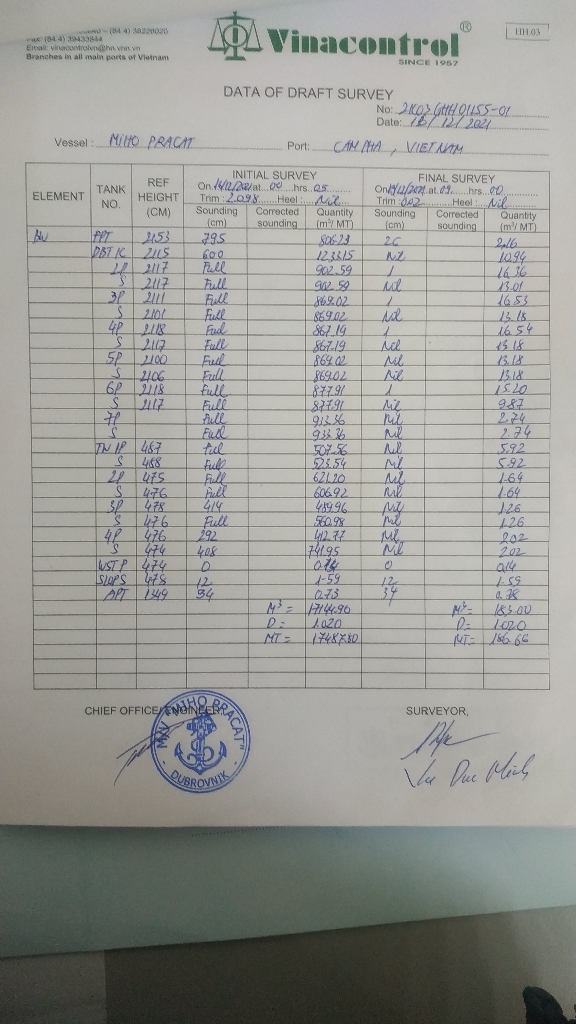 (84.4) 36226020
Fax: (84.4) 39433844
Email: vinacontrolvn@hn.vnn.vn
Branches in all main ports of Vietnam
Vinacontrol®
SINCE 1957
HH.03
DATA OF DRAFT SURVEY
No: 21K03GHH01155-01
Date: /12/2021
Vessel: MIHO PRACAT Port: CAM PHA, VIETNAM
ELEMENT TANK NO. REF HEIGHT (CM) INITIAL SURVEY FINAL SURVEY
On 14/12/2021 at 00 hrs 05 On /12/2021 at 09 hrs 00
Trim: 2.098 Heel: Nil Trim: 0.02 Heel: Nil
Sounding (cm) Corrected sounding Quantity (m³/ MT) Sounding (cm) Corrected sounding Quantity (m³/ MT)
FPT 2153 795 26 2.16
DBT 1C 2115 600 1233.15 Nil 10.94
1P 2117 Full 902.59 1 16.36
S 2117 Full 902.59 Nil 13.01
3P 2111 Full 869.02 1 16.53
S 2101 Full 869.02 Nil 13.18
4P 2118 Full 867.19 1 16.54
S 2117 Full 867.19 Nil 13.18
5P 2100 Full 869.02 Nil 13.18
S 2106 Full 869.02 Nil 13.18
6P 2118 Full 877.91 1 15.20
S 2117 Full 877.91 Nil 9.87
7P Full 913.36 Nil 2.74
S Full Nil 2.74
1P 487 Full 507.56 Nil 5.92
S 488 Full 523.54 Nil 5.92
2P 475 Full 621.20 Nil 1.64
S 476 Full 606.92 Nil 1.64
3P 478 414 Nil 1.26
S 476 Full 560.98 Nil 1.26
4P 476 292 412.77 Nil 2.02
S 474 408 741.95 Nil 2.02
WST P 474 0 0.14 0 0.14
SLOP S 478 12 1.59 12 1.59
APT 1349 34 0.73 34
M³ = 17144.90 M³ = 183.00
D = 1.020 D = 1.020
MT = 17487.80 MT = 186.66
CHIEF OFFICE/ENGINEER, SURVEYOR,
M/V "MIHO PRACAT"
DUBROVNIK
Vu Duc Minh